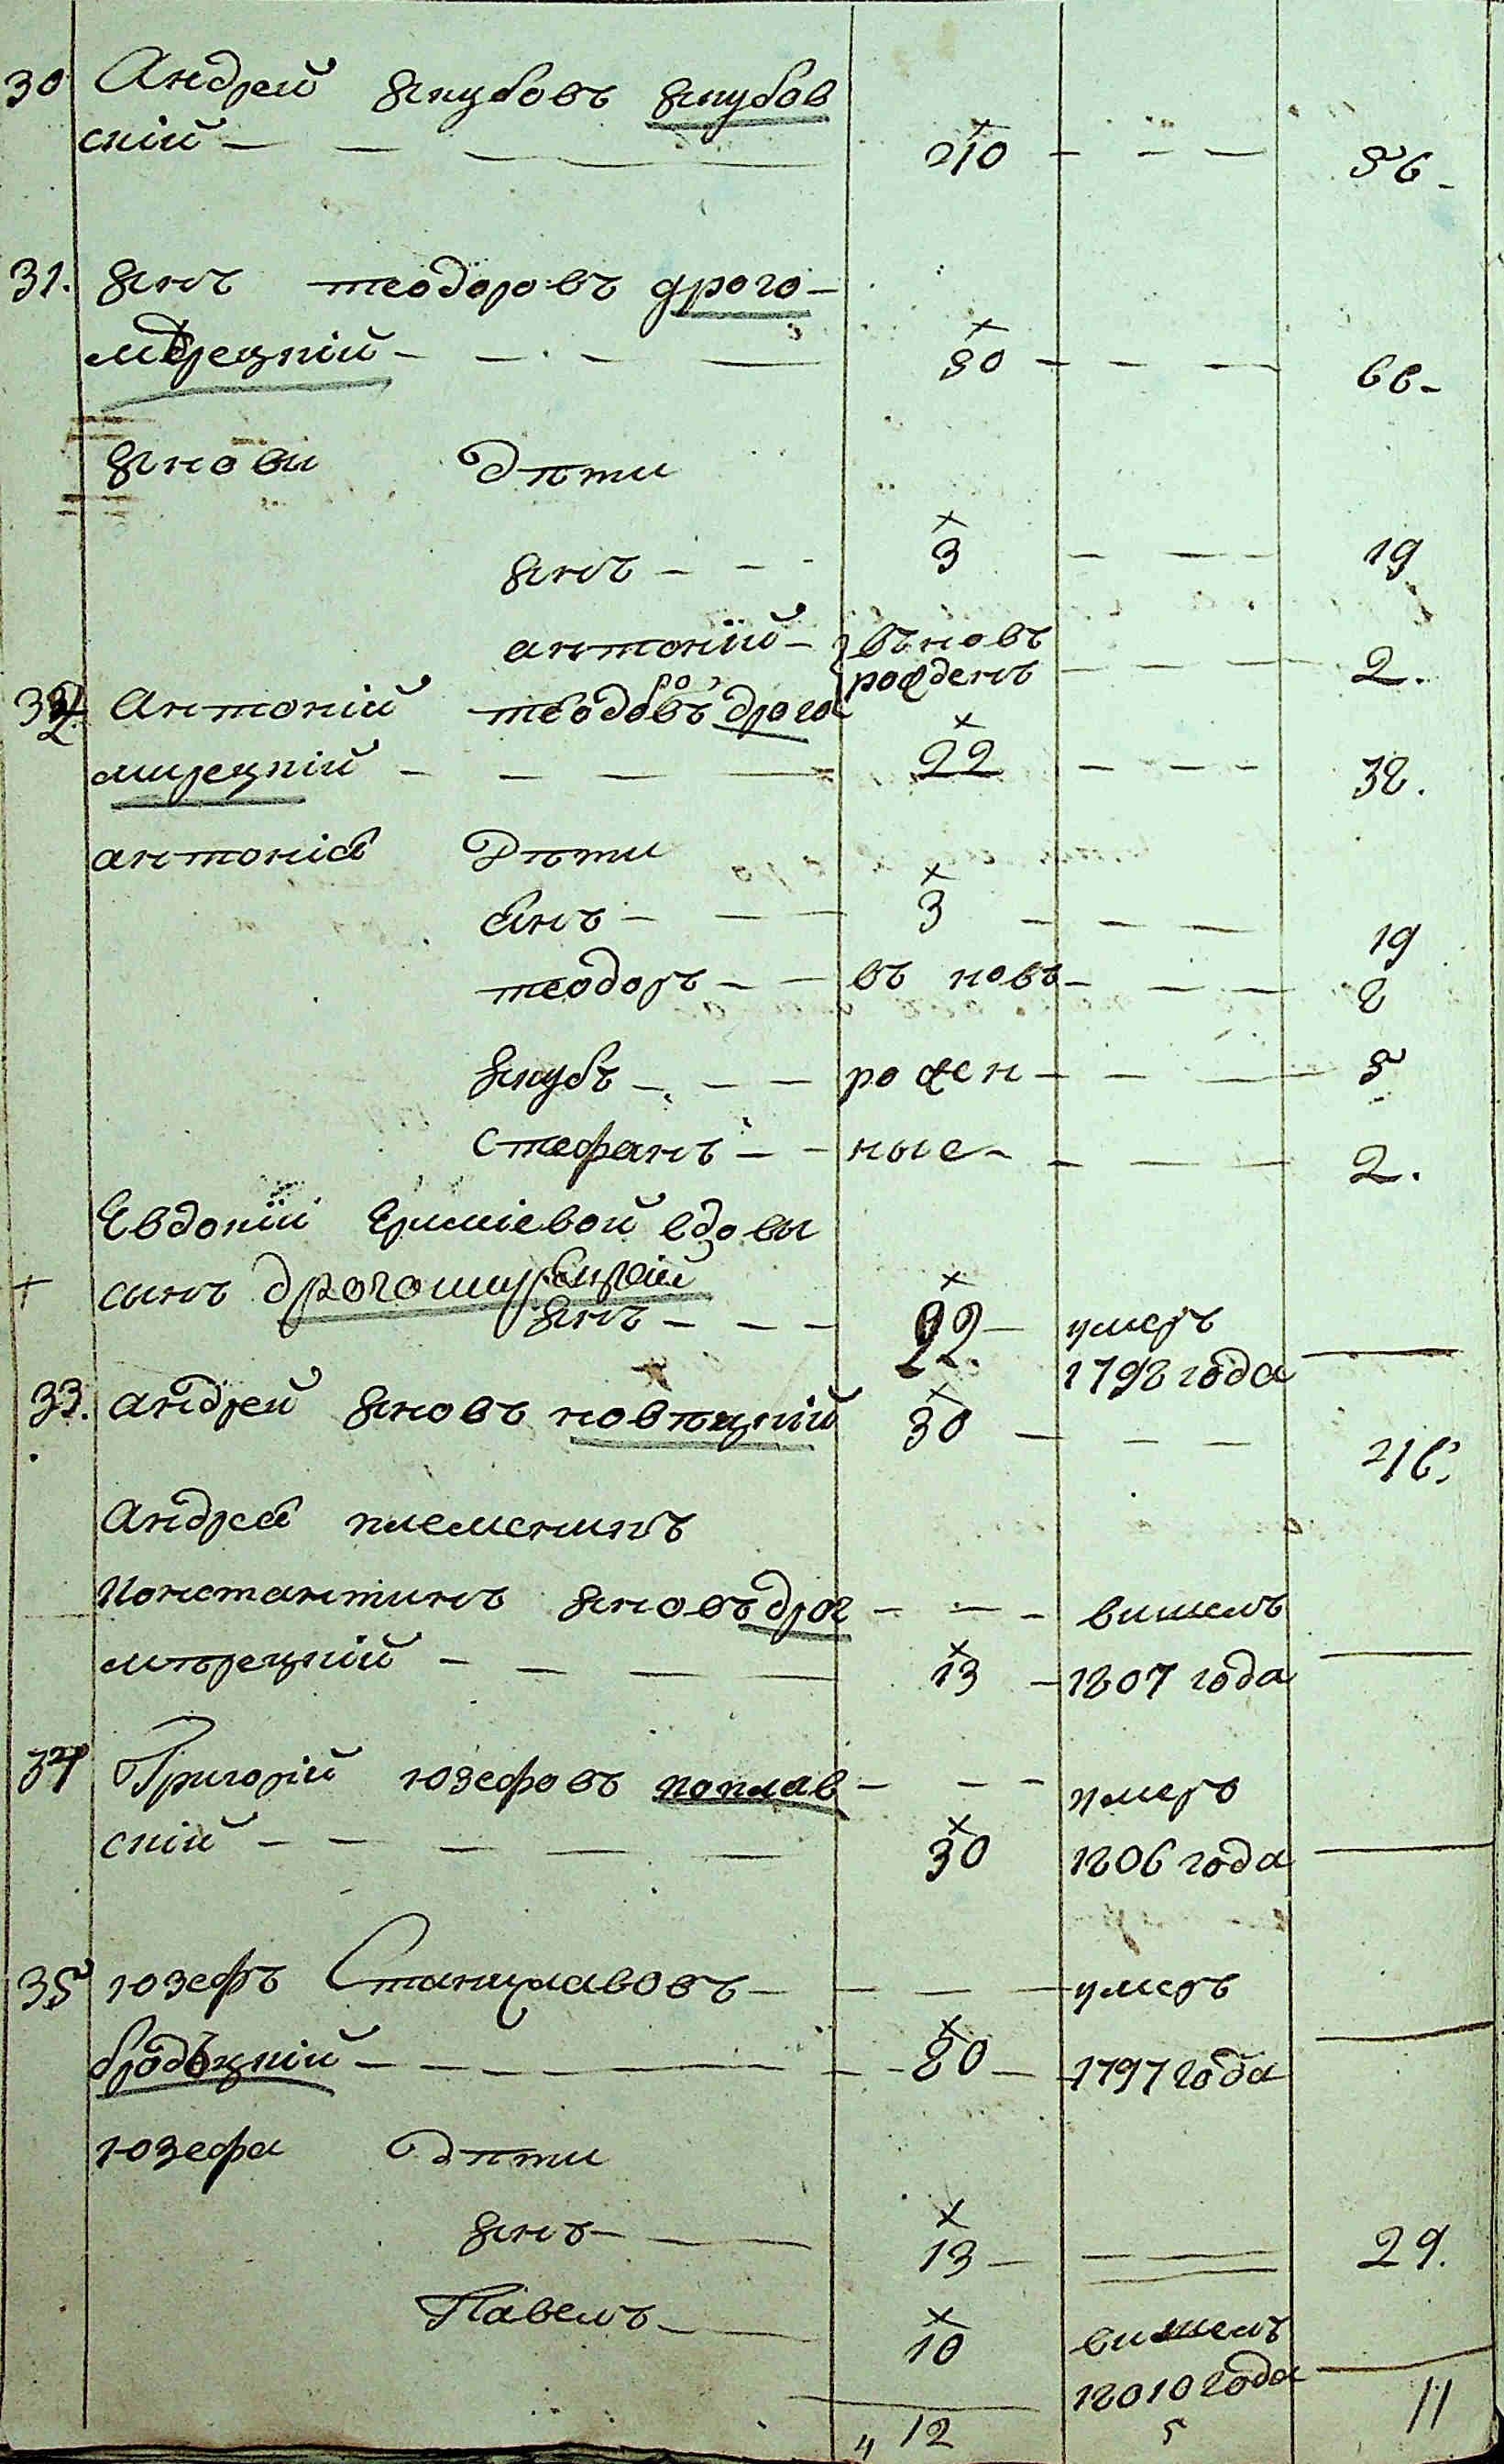 30 Андрей Якубовъ Якубов
скій — 40 — 56
31. Янъ теодоровъ дрого-
мерецкій — 50 — 66
Янови дѣти
Янъ — 3 — 19
антоній — въновь
рожденъ — 2.
32 Антоній теодоровъ дрого
мирецкій — 22 — 38.
антонія Дѣти
Янъ — 3 — 19
теодоръ — въ новь — 8
Якубъ — рожен — 5
Стефанъ — ные — 2.
Евдокіи Ермиевой вдовы
сынъ дрогомирецкій
Янъ — 22. умеръ
1798 года
33. андрей Яновъ новѣцкій 30 — 46.
Андрея племенникъ
Константинъ Яновъ дрог — вишелъ
мѣрецкій — 13 — 1807 года
34 Григорій юзефовъ поплав — умеръ
скій — 30 1806 года
35 юзефъ Станиславовъ — умеръ
бродѣцкій — 80 — 1797 года
юзефа дѣти
Янъ — 13 — 29.
Павелъ — 10 вишелъ
18010 года
12 5 11